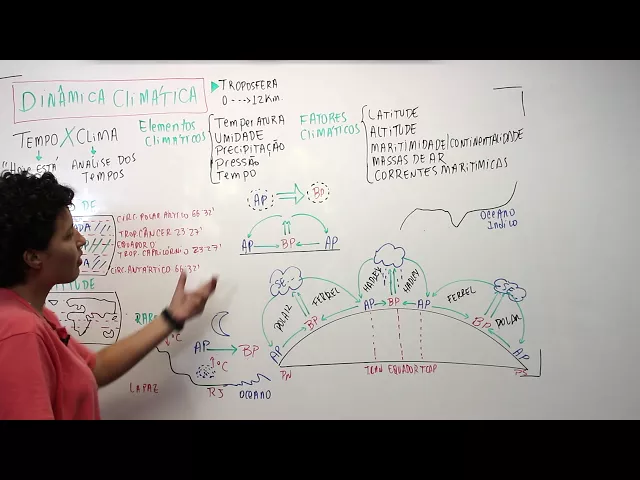 DINÂMICA CLIMÁTICA
TROPOSFERA
0 ---> 12 Km.
TEMPO X CLIMA
"HOJE ESTÁ
ANÁLISE DOS
TEMPOS
Elementos
CLIMÁTICOS
Temperatura
UMIDADE
Precipitação
Pressão
Tempo
FATORES
CLIMÁTICOS
LATITUDE
ALTITUDE
MARITIMIDADE/CONTINENTALIDADE
MASSAS DE AR
CORRENTES MARITIMICAS
DE
CIRC. POLAR ÁRTICO 66°32'
TROP. CÂNCER 23°27'
EQUADOR 0
TROP. CAPRICÓRNIO 23°27'
CIRC. ANTÁRTICO 66°32'
TUDE
AP BP
AP BP AP
OCEANO
INDICO
POLAR FERREL HADLEY HADLEY FERREL POLAR
AP BP AP BP AP BP AP
PN TCAN EQUADOR TCAP PS
AP BP
°C °C
LAPAZ RJ OCEANO